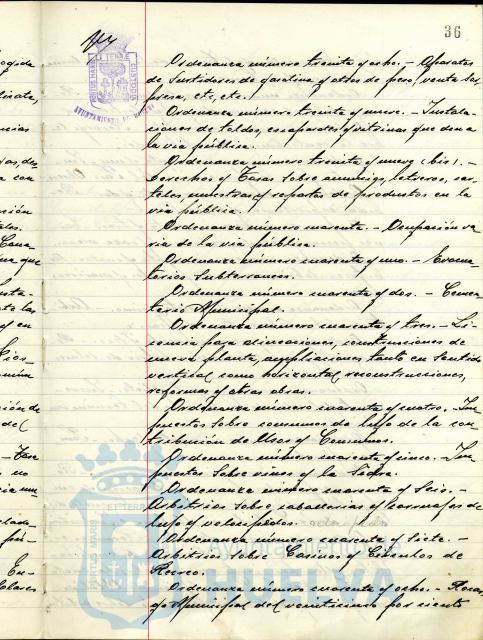 36
Ordenanza número treinta y ocho. - Aparatos
de Surtidores de gasolina y otros de peso, venta
presa, etc, etc.
Ordenanza número treinta y nueve. - Instala-
ciones de toldos, escaparates y vitrinas que den a
la vía pública.
Ordenanza número treinta y nueve (bis). -
Derechos y tasas sobre anuncios, letreros, car-
teles, muestras y reparto de productos en la
vía pública.
Ordenanza número cuarenta. - Ocupación va-
ria de la vía pública.
Ordenanza número cuarenta y uno. - Evacua-
torios Subterraneos.
Ordenanza número cuarenta y dos. - Cemen-
terio Municipal.
Ordenanza número cuarenta y tres. - Li-
cencia para alineaciones, construcciones de
nueva planta, ampliaciones tanto en sentido
vertical como horizontal, reconstrucciones,
reformas y otras obras.
Ordenanza número cuarenta y cuatro. - Im-
puestos sobre consumos de lujo de la con-
tribución de Usos y Consumos.
Ordenanza número cuarenta y cinco. - Im-
puestos sobre vinos y la Sidra.
Ordenanza número cuarenta y Seis. -
Arbitrios sobre caballerías y carruajes de
lujo y velocípedos.
Ordenanza número cuarenta y Siete. -
Arbitrios sobre Casinos y Círculos de
Recreo.
Ordenanza número cuarenta y ocho. - Recar-
go Municipal del veinticinco por ciento
Ayuntamiento de
HUELVA